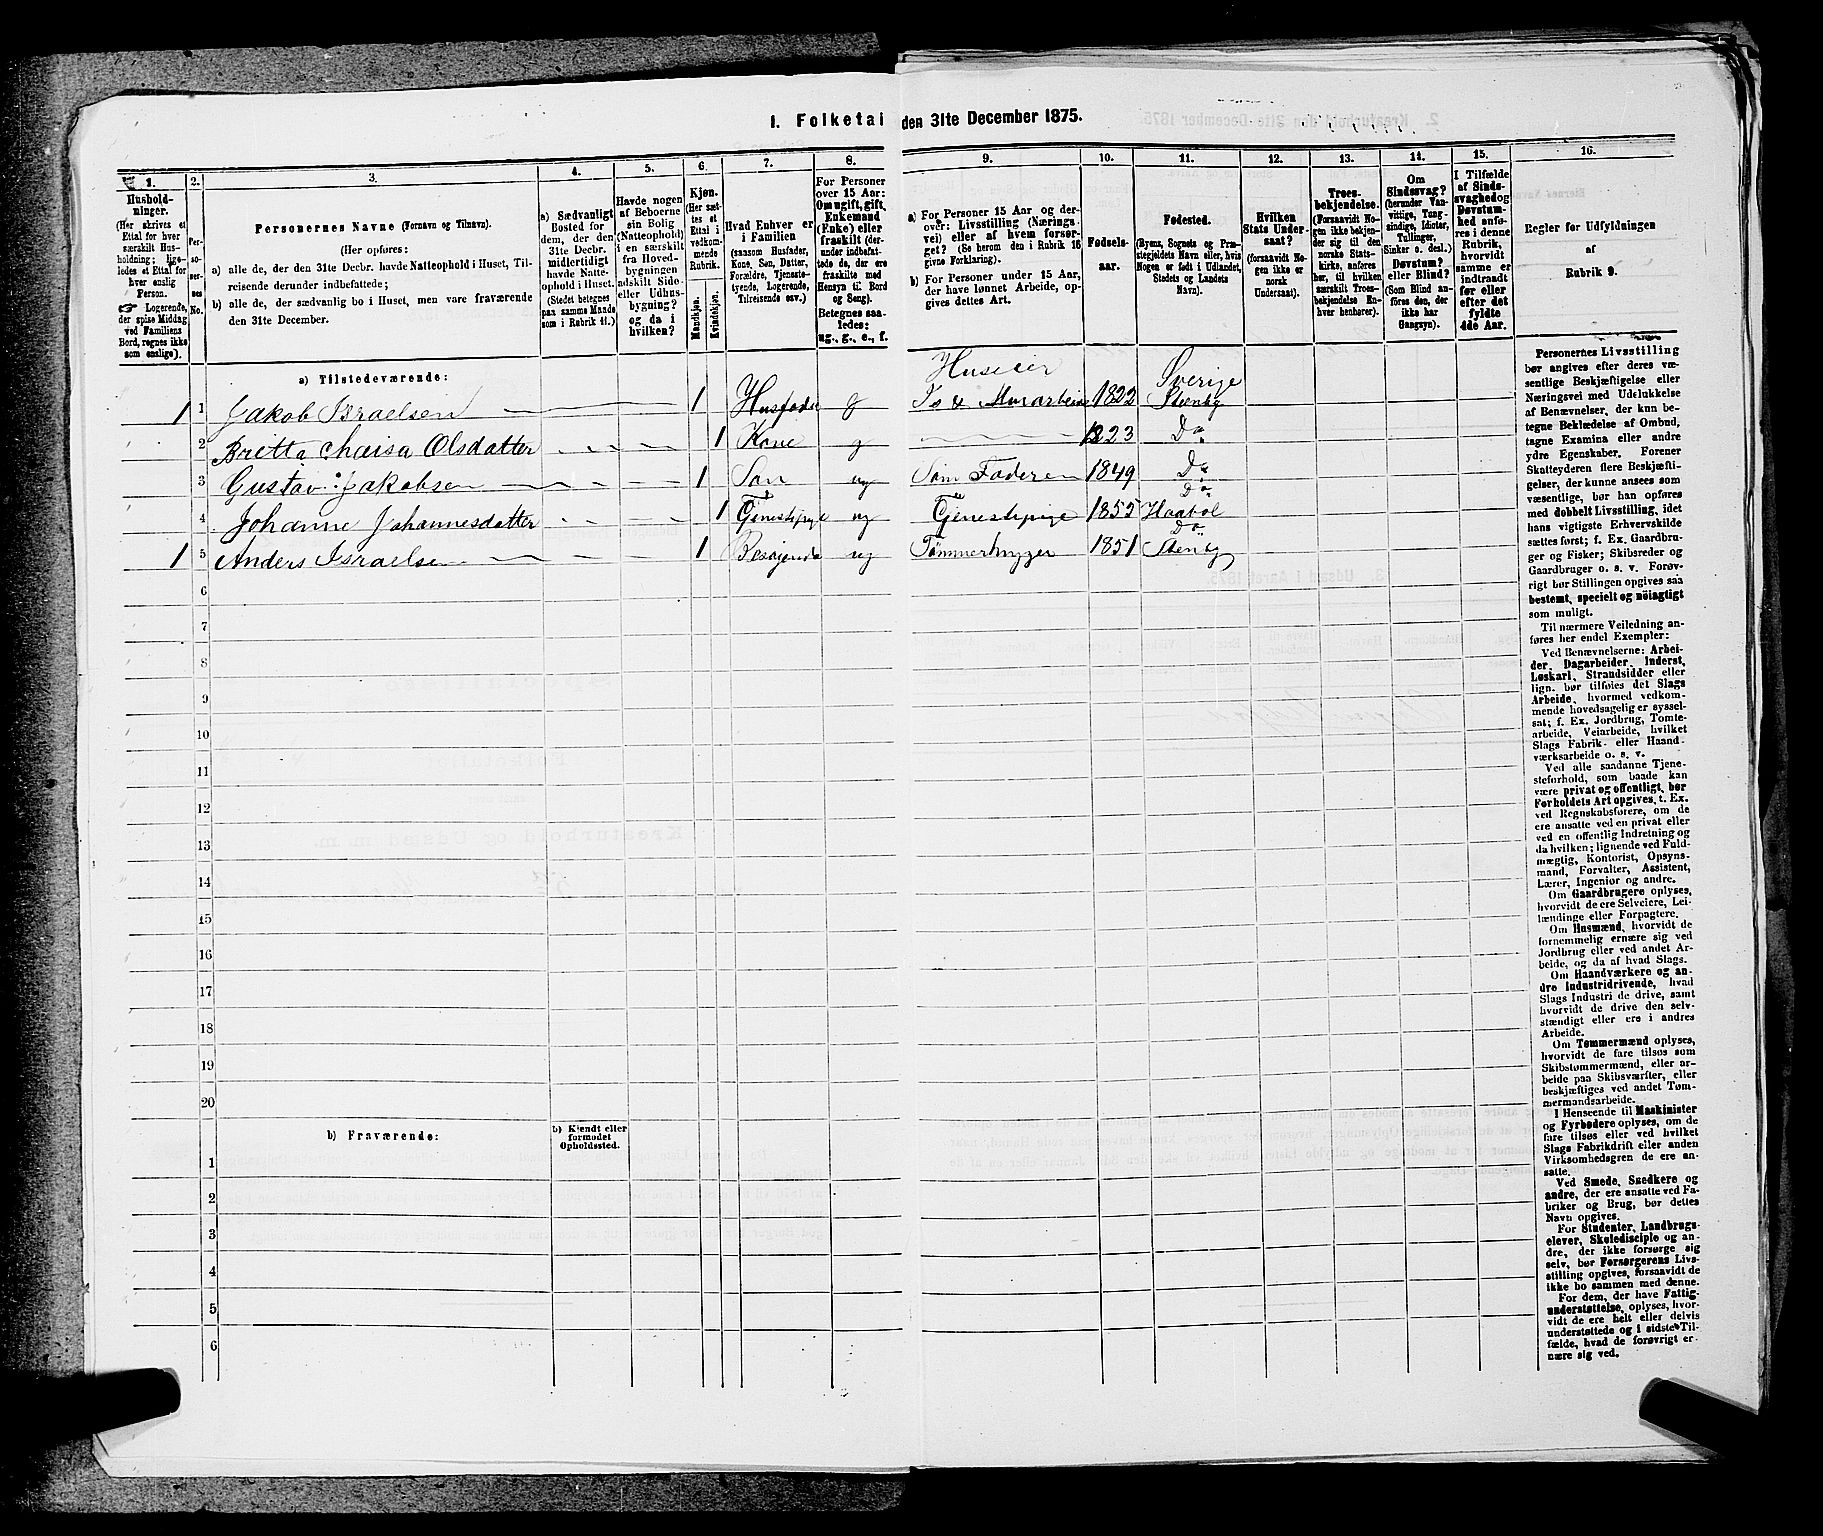 1. Folketal den 31te December 1875.
1. 2. 3. 4. 5. 6. 7. 8. 9. 10. 11. 12. 13. 14. 15. 16.
Hushold-
ninger.
(Her skrives et
Ettal for hver
særskilt Hus-
holdning; lige-
ledes et Ettal for
hver enslig
Person.
☞ Logerende,
der spise Middag
ved Familiens
Bord, regnes ikke
som enslige).
Per-
so-
ner-
nes
No.
Personernes Navne (Fornavn og Tilnavn).
(Her opføres:
a) alle de, der den 31te Decbr. havde Natteophold i Huset, Til-
reisende derunder indbefattede;
b) alle de, der sædvanlig bo i Huset, men vare fraværende
den 31te December.
a) Sædvanligt
Bosted for
dem, der den
31te Decbr.
midlertidigt
havde Natte-
ophold i Huset.
(Stedet betegnes
paa samme Maade
som i Rubrik 11.)
Havde nogen
af Beboerne
sin Bolig
(Natteophold)
i en særskilt
fra Hoved-
bygningen
adskilt Side-
eller Udhus-
bygning?
og da i
hvilken?
Kjøn.
(Her sæt-
tes et
Ettal i
vedkom-
mende
Rubrik.
Mandkjøn.
Kvindekjøn.
Hvad Enhver er
i Familien
(saasom Husfader,
Kone, Søn, Datter,
Forældre, Tjeneste-
tyende, Logerende,
Tilreisende osv.)
For Personer
over 15 Aar:
Om ugift, gift,
Enkemand
(Enke) eller
fraskilt (der-
under indbefat-
tede de, der ere
fraskilte med
Hensyn til Bord
og Seng).
Betegnes saa-
ledes:
ug., g., e., f.
a) For Personer 15 Aar og der-
over: Livsstilling (Nærings-
vei) eller af hvem forsør-
get? (Se herom den i Rubrik 16
givne Forklaring).
b) For Personer under 15 Aar,
der have lønnet Arbeide, op-
gives dettes Art.
Fødsels-
aar.
Fødested.
(Byens, Sognets og Præ-
stegjeldets Navn eller, hvis
Nogen er født i Udlandet,
Stedets og Landets
Navn).
Hvilken
Stats Under-
saat?
(forsaavidt No-
gen ikke er
norsk
Undersaat).
Troes-
bekjendelse.
(Forsaavidt No-
gen ikke bekjen-
der sig til den
norske Stats-
kirke, anføres
her, til hvilken
særskilt Troes-
bekjendelse En-
hver henhører).
Om
Sindssvag?
(herunder Van-
vittige, Tung-
sindige, Idioter,
Tullinger,
Sinker o. desl.)
Døvstum?
eller Blind?
(Som Blind an-
føres den, der
ikke har
Gangsyn).
I Tilfælde
af Sinds-
svaghed og
Døvstum-
hed anfø-
res i denne
Rubrik,
hvorvidt
samme er
indtraadt
før eller
efter det
fyldte
4de Aar.
Regler for Udfyldningen
af
Rubrik 9.
a) Tilstedeværende:
Huseier Sverige
1 1 Jakob Israelsen 1 Husfader g Jo & Murarbeide 1822 Stenby
2 Britta Maisa Olsdatter 1 Kone g 1823 Do
3 Gustav Jakobsen 1 Søn ug Som Faderen 1849 Do
Do
4 Johanne Johannesdatter 1 Tjenestepige ug Tjenestepige 1855 Haabøl
Do
1 5 Anders Israelsen 1 Besøgende ug Tømmerhugger 1851 Stenby
6
7
8
9
10
11
12
13
14
15
16
17
18
19
20
b) Fraværende:
b) Kjendt eller
formodet
Opholdssted.
1
2
3
4
5
6
Personernes Livsstilling
bør angives efter deres væ-
sentlige Beskjæftigelse eller
Næringsvei med Udelukkelse
af Benævnelser, der kun be-
tegne Beklædelse af Ombud,
tagne Examina eller andre
ydre Egenskaber. Forener
Skatteyderen flere Beskjæfti-
gelser, der kunne ansees som
væsentlige, bør han opføres
med dobbelt Livsstilling, idet
hans vigtigste Erhvervskilde
sættes først; f. Ex. Gaardbru-
ger og Fisker; Skibsreder og
Gaardbruger o. s. v. Forøv-
rigt bør Stillingen opgives saa
bestemt, specielt og nöiagtigt
som muligt.
Til nærmere Veiledning an-
føres her endel Exempler:
Ved Benævnelserne: Arbei-
der, Dagarbeider, Inderst,
Løskarl, Strandsidder eller
lign. bør tilføies det Slags
Arbeide, hvormed vedkom-
mende hovedsagelig er syssel-
sat; f. Ex. Jordbrug, Tomte-
arbeide, Veiarbeide, hvilket
Slags Fabrik- eller Haand-
værksarbeide o. s. v.
Ved alle saadanne Tjene-
steforhold, som baade kan
være privat og offentligt, bør
Forholdets Art opgives, t. Ex.
ved Regnskabsførere, om de
ere ansatte ved en privat eller
ved en offentlig Indretning og
da hvilken; lignende ved Fuld-
mægtig, Kontorist, Opsyns-
mand, Forvalter, Assistent,
Lærer, Ingeniør og andre.
Om Gaardbrugere oplyses,
hvorvidt de ere Selveiere, Lei-
lændinge eller Forpagtere.
Om Husmænd, hvorvidt de
fornemmelig ernære sig ved
Jordbrug eller ved andet Ar-
beide, og da af hvad Slags.
Om Haandværkere og an-
dre Industridrivende, hvad
Slags Industri de drive, samt
hvorvidt de drive den selv-
stændigt eller ere i andres
Arbeide.
Om Tømmermænd oplyses,
hvorvidt de fare tilsøs som
Skibstømmermænd, eller ar-
beide paa Skibsværfter, eller
beskjæftiges ved andet Tøm-
mermandsarbeide.
I Henseende til Maskinister
og Fyrbødere oplyses, om de
fare tilsøs eller ved hvilket
Slags Fabrikdrift eller anden
Virksomhedsgren de ere an-
satte.
Ved Smede, Snedkere og
andre, der ere ansatte ved Fa-
briker og Brug, bør dettes
Navn opgives.
For Studenter, Landbrugs-
elever, Skoledisciple og an-
dre, der ikke forsørge sig
selv, bør Forsørgerens Livs-
stilling opgives, forsaavidt de
ikke bo sammen med denne.
For dem, der have Fattig-
understøttelse, oplyses, hvor-
vidt de ere helt eller delvis
understøttede og i sidste Til-
fælde, hvad de forøvrigt er-
nære sig ved.